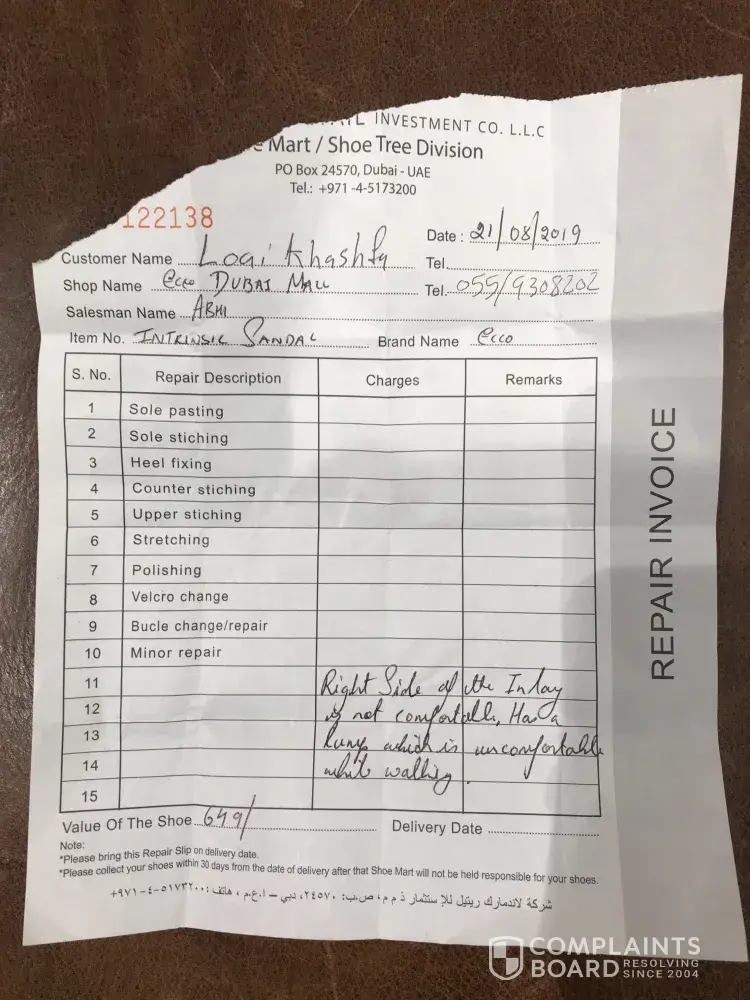 INVESTMENT CO. L.L.C
Mart / Shoe Tree Division
PO Box 24570, Dubai - UAE
Tel.: +971 -4-5173200
122138
Date : 21/08/2019
Customer Name Loai Khashfa
Tel.
Shop Name Ecco DUBAI MALL
Tel. 055/9308202
Salesman Name ABHI
Item No. INTRINSIC SANDAL
Brand Name Ecco
S. No. Repair Description Charges Remarks
1 Sole pasting
2 Sole stiching
3 Heel fixing
4 Counter stiching
5 Upper stiching
6 Stretching
7 Polishing
8 Velcro change
9 Bucle change/repair
10 Minor repair
11 Right Side of the Inlay
12 is not comfortable, Has a
13 lump which is uncomfortable
14 while walking.
15
Value Of The Shoe 649/
Delivery Date
Note:
*Please bring this Repair Slip on delivery date.
*Please collect your shoes within 30 days from the date of delivery after that Shoe Mart will not be held responsible for your shoes.
شركة لاندمارك ريتيل للإستثمار ذ م م، ص.ب: ٢٤٥٧٠، دبي – ا.ع.م ، هاتف: ٥١٧٣٢٠٠-٤-٩٧١+
REPAIR INVOICE
COMPLAINTS
BOARD RESOLVING SINCE 2004